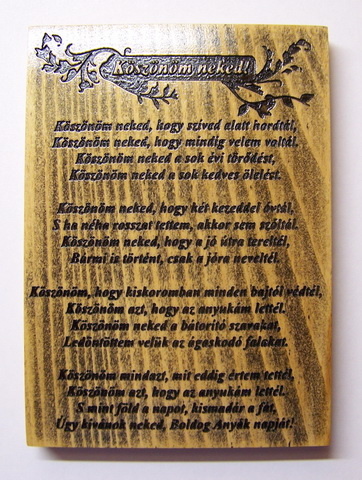 Köszönöm neked!
Köszönöm neked, hogy szíved alatt hordtál,
Köszönöm neked, hogy mindig velem voltál.
Köszönöm neked a sok évi törődést,
Köszönöm neked a sok kedves ölelést.
Köszönöm neked, hogy két kezeddel óvtál,
S ha néha rosszat tettem, akkor sem szóltál.
Köszönöm neked, hogy a jó útra tereltél,
Bármi is történt, csak a jóra neveltél.
Köszönöm, hogy kiskoromban minden bajtól védtél,
Köszönöm azt, hogy az anyukám lettél.
Köszönöm neked a bátorító szavakat,
Ledöntöttem velük az ágaskodó falakat.
Köszönöm mindazt, mit eddig értem tettél,
Köszönöm azt, hogy az anyukám lettél.
S mint föld a napot, kismadár a fát,
Úgy kívánok neked, Boldog Anyák napját!